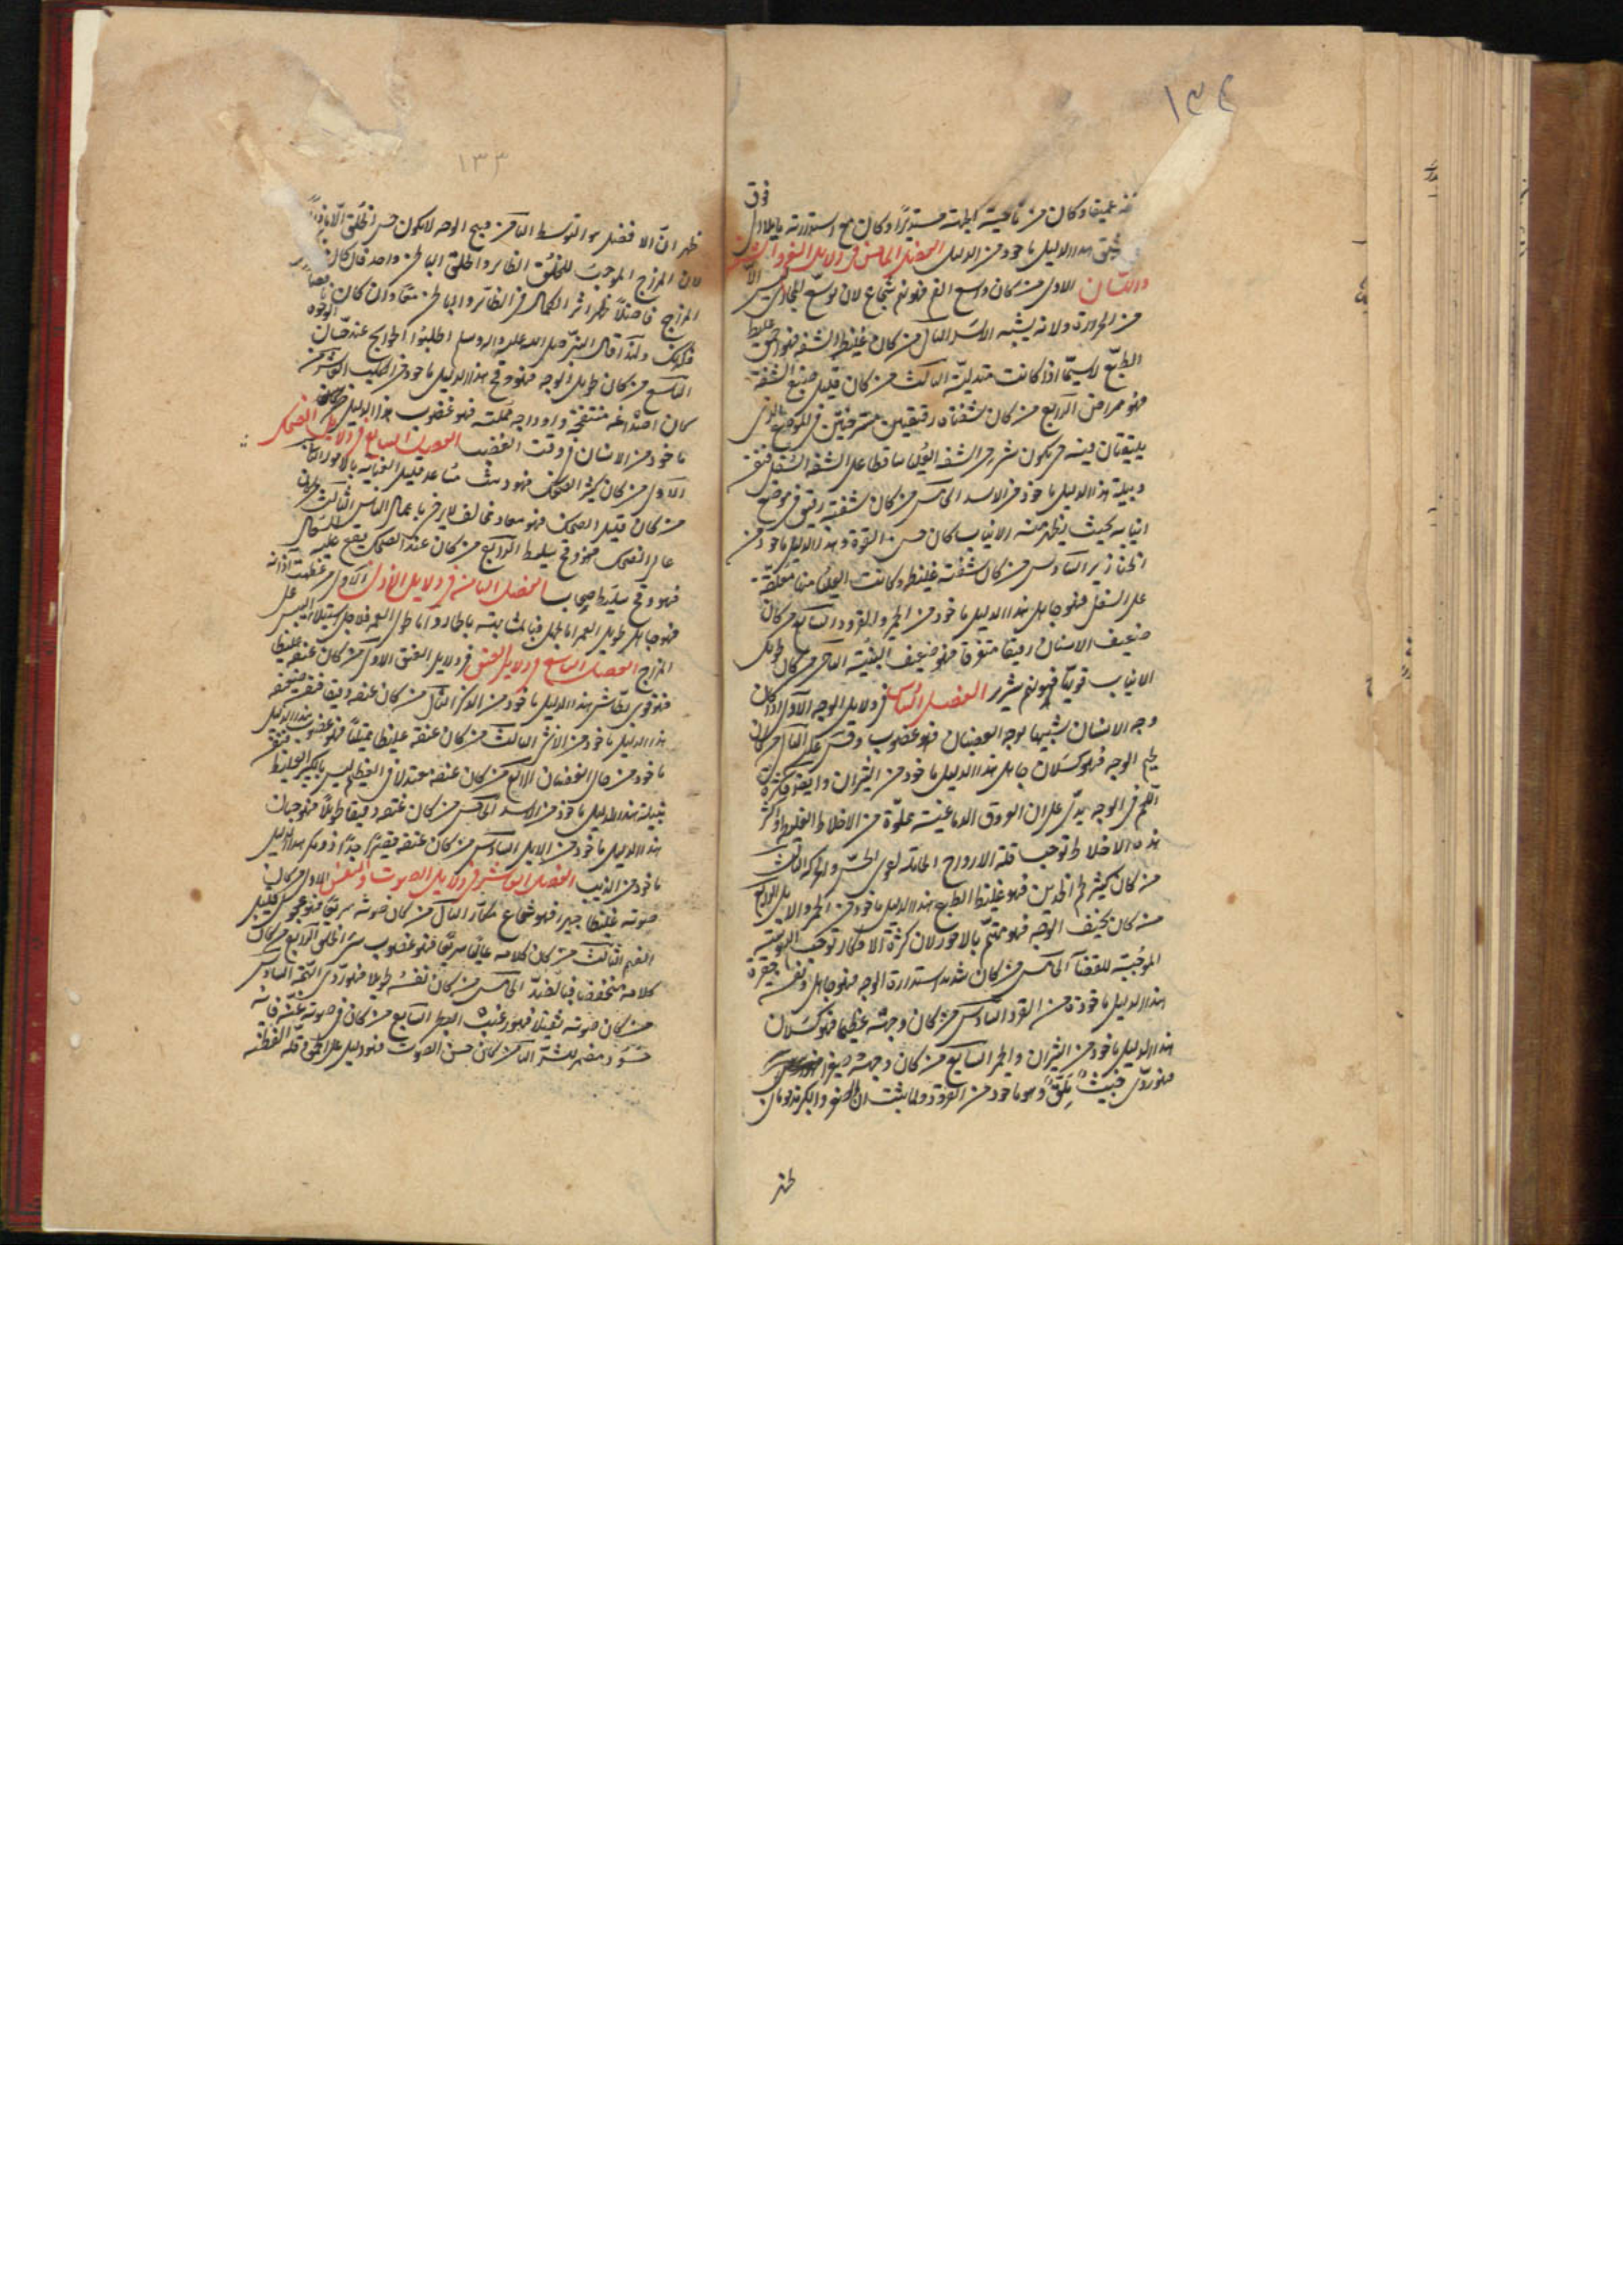 ١٣٤
فوق
عميقا وكان من ناحية الجبهة مستديرا وكان مع استدارته مايلا الى
هذا الدليل ماخوذ من الديك الفصل الخامس فى دلايل الفم والشفة
والاسنان الاول من كان واسع الفم فهو نهم شجاع لان توسع المجارى ليس الا
من الحرارة ولانه يشبه الاسد الثانى من كان غليظ الشفة فهو احمق غليظ
الطبع لاسيما اذا كانت متدلية الثالث من كان قليل صبغ الشفة
فهو ممراض الرابع من كان شفتاه رقيقتين مسترخيتين فى الموضع الذى
يلتقيان فيه حتى يكون شىء من الشفة العليا ساقطا على الشفة السفلى فهو
نبيلة هذا الدليل ماخوذ من الاسد الخامس من كان شفته رقيق فى موضع
انيابه بحيث يظهر منه الانياب كان حسن القوة وهذا الدليل ماخوذ من
الخنازير السادس من كان شفته غليظة وكانت العليا منها معلقة
على السفلى فهو جاهل هذا الدليل ماخوذ من الحمر والقرود السابع من كان
ضعيف الاسنان رقيقا متفرقا فهو ضعيف البنية الثامن من كان طويل
الانياب قويا فهو نهم شرير الفصل السادس فى دلايل الوجه الاول اذا كان
وجه الانسان شبيها بوجه الغضبان فهو غضوب وقس عليه الثانى من كان
لحيم الوجه فهو كسلان جاهل هذا الدليل ماخوذ من الثيران وايضا فكثرة
اللحم فى الوجه يدل على ان العروق الدماغية مملوة من الاخلاط الغليظة وكثرة
هذه الاخلاط توجب قلة الارواح الحاملة لقوى الحس والحركة الثالث
من كان كثير لحم الخدين فهو غليظ الطبع هذا الدليل ماخوذ من الحمر والابل الرابع
من كان نحيف الوجه فهو مهتم بالامور لان كثرة الافكار توجب اليبوسة
الموجبة للقضافة الخامس من كان شديد استدارة الوجه فهو جاهل ونفسه حقيرة
هذا الدليل ماخوذة من القرد السادس من كان وجهه عظيما فهو كسلان
هذا الدليل ماخوذ من الثيران والحمر السابع من كان وجهه صغيرا
فهو ردى خبيث ملق وهو ماخوذ من القرود ولما ثبت ان الصغر والكبر مذمومان
ظهر
١٣٣
ظهر ان الافضل هو التوسط الثامن قبيح الوجه لا يكون حسن الخلق الا نادرا
لان المزاج الموجب للخلق الظاهر والخلق الباطن واحد فان كان
المزاج فاضلا ظهر اثر الكمال فى الظاهر والباطن معا وان كان ناقصا
فكذلك ولهذا قال النبى صلى الله عليه واله وسلم اطلبوا الحوايج عند حسان الوجوه
التاسع من كان طويل الوجه فهو وقح هذا الدليل ماخوذ من الكلب العاشر من
كان اصداغه منتفخة واوداجه ممتلئة فهو غضوب هذا الدليل
ماخوذ من الانسان فى وقت الغضب الفصل السابع فى دلايل الضحك
الاول من كان كثير الضحك فهو دمث مساعد قليل العناية بالامور الثانى
من كان قليل الضحك فهو مضاد مخالف لا يرضى باعمال الناس الثالث من كان
عالى الضحك فهو وقح سليط الرابع من كان عند الضحك يقع عليه السعال
فهو وقح سليط صخاب الفصل الثامن فى دلايل الاذان الاول من عظمت اذانه
فهو جاهل طويل العمر اما الجهل فبالمشابهة بالحمار واما طول العمر فلاجل استيلاء اليبس على
المزاج الفصل التاسع فى دلايل العنق الاول من كان عنقه غليظا
فهو قوى بطاش هذا الدليل ماخوذ من الذكر الثانى من كان عنقه دقيقا فنفسه ضعيفة
هذا الدليل ماخوذ من الانثى الثالث من كان عنقه غليظا ممتليا فهو غضوب هذا الدليل
ماخوذ من حال الغضبان الرابع من كان عنقه معتدلا فى العظم ليس بالكبير الغليظ فنفسه
نبيلة هذا الدليل ماخوذ من الاسد الخامس من كان عنقه دقيقا طويلا فهو جبان
هذا الدليل ماخوذ من الايل السادس من كان عنقه قصيرا جدا فهو ذو مكر هذا الدليل
ماخوذ من الذيب الفصل العاشر فى دلايل الصوت والنفس الاول من كان
صوته غليظا جهيرا فهو شجاع مكار الثانى من كان صوته سريعا فهو عجول قليل
الفهم الثالث من كان كلامه عاليا سريعا فهو غضوب سىء الخلق الرابع من كان
كلامه منخفضا فبالضد الخامس من كان نفسه طويلا فهو ردى الهمة السادس
من كان صوته ثقيلا فهو رغيب البطن السابع من كان فى صوته غنة فانه
حسود مضمر للشر الثامن من كان حسن الصوت فهو دليل على الحمق وقلة الفطنة